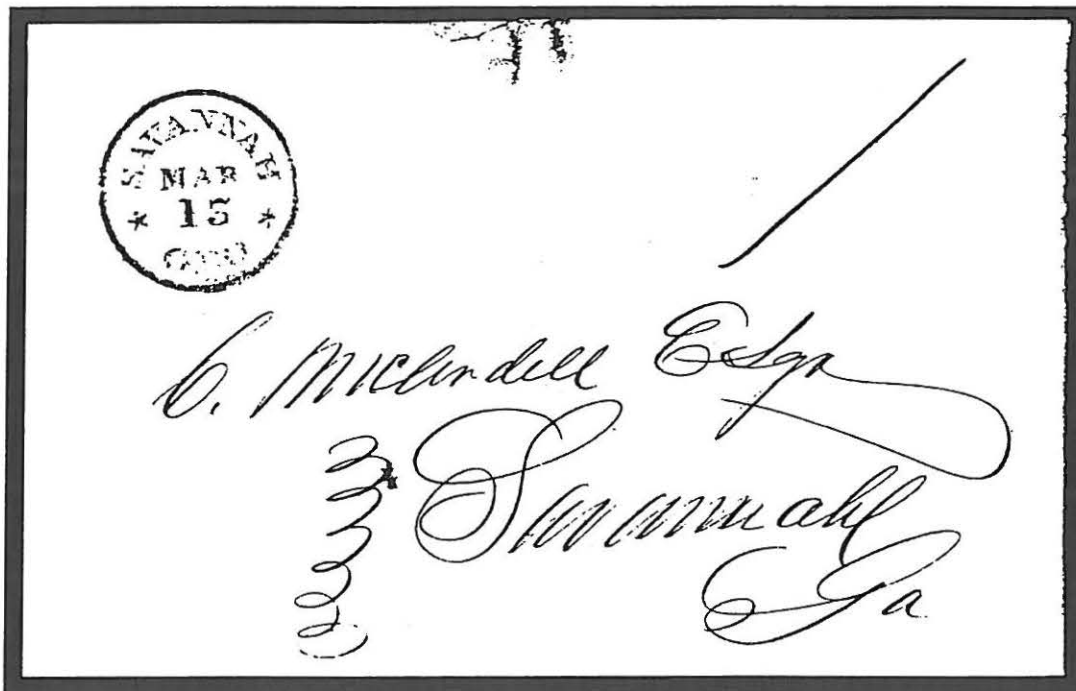 SAVANNAH
MAR
* 15 *
C. McClendell Esqr
Savannah
Ga